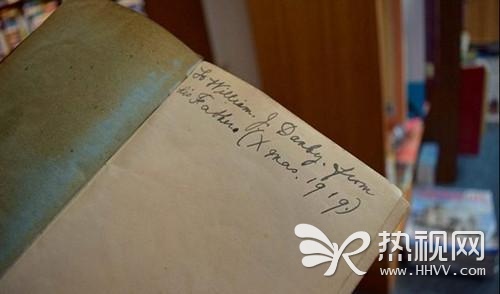 To William. J. Danby. from
his Father. (Xmas. 1919.)
热视网
www.HHVV.com